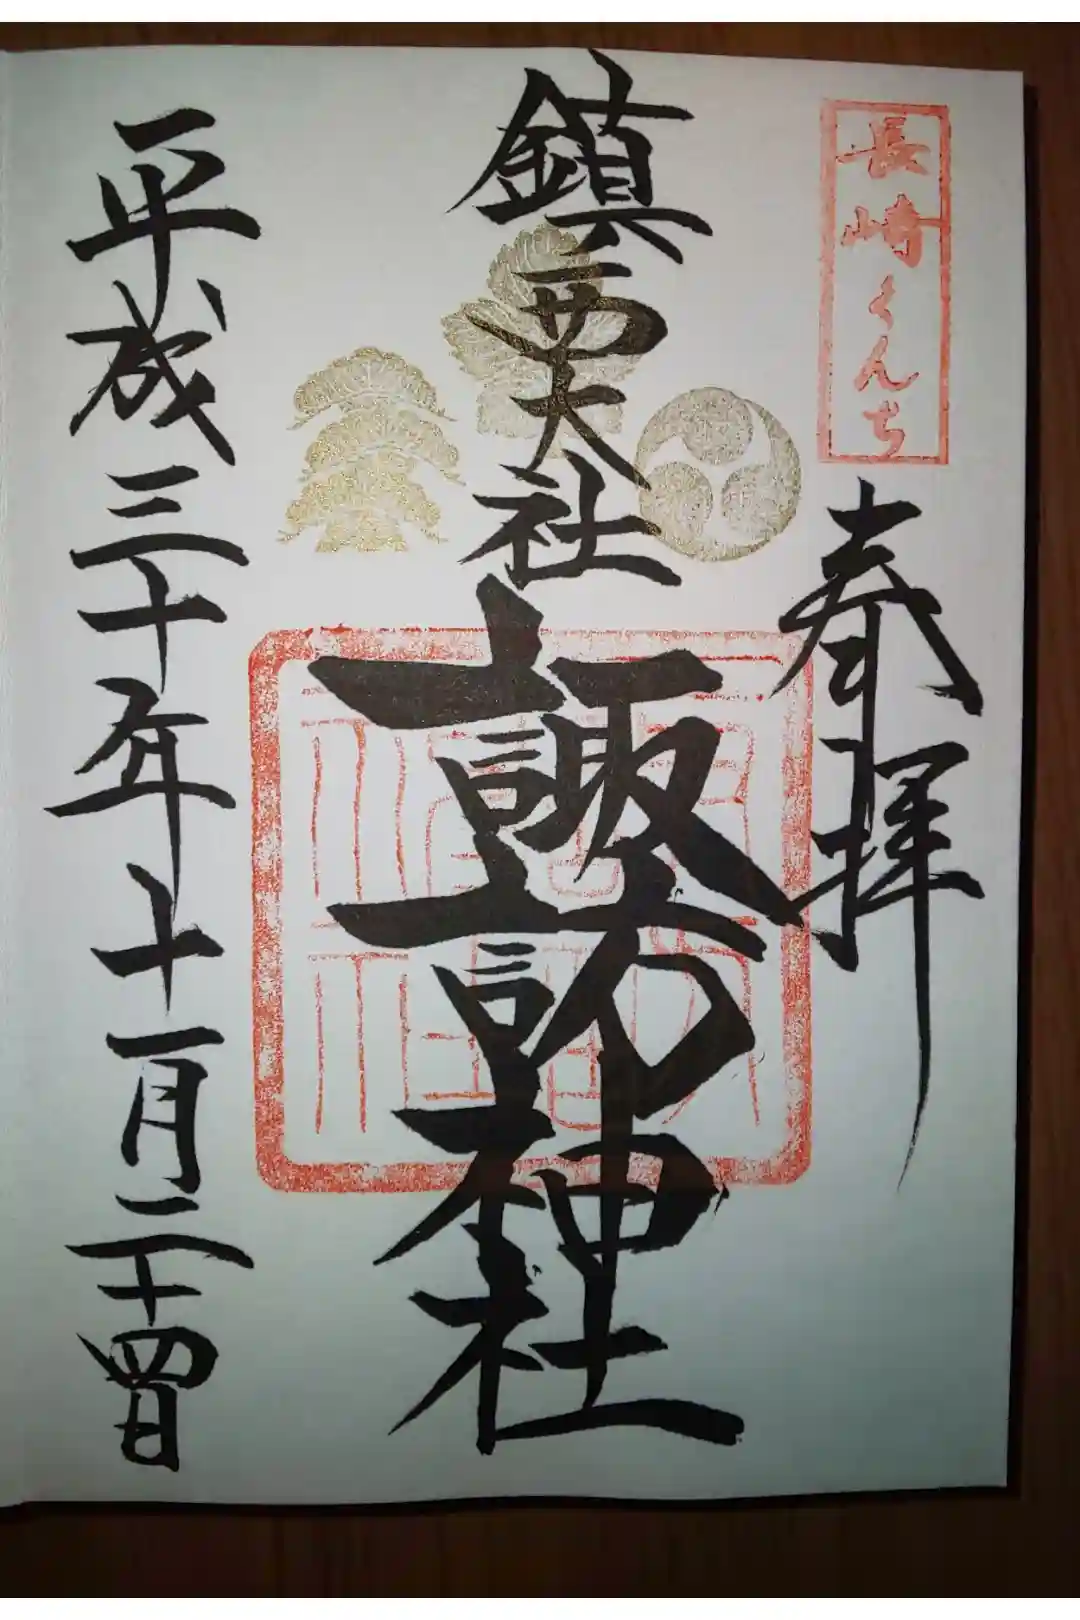 長崎くんち
奉拝
鎮西大社
諏訪神社
平成三十年十月二十四日